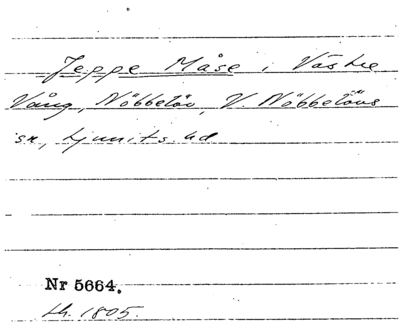 Jeppe Måse i Västre
Vång, Nöbbelöv, V. Nöbbelövs
sn, Ljunits hd
Nr 5664.
Lh. 1805.